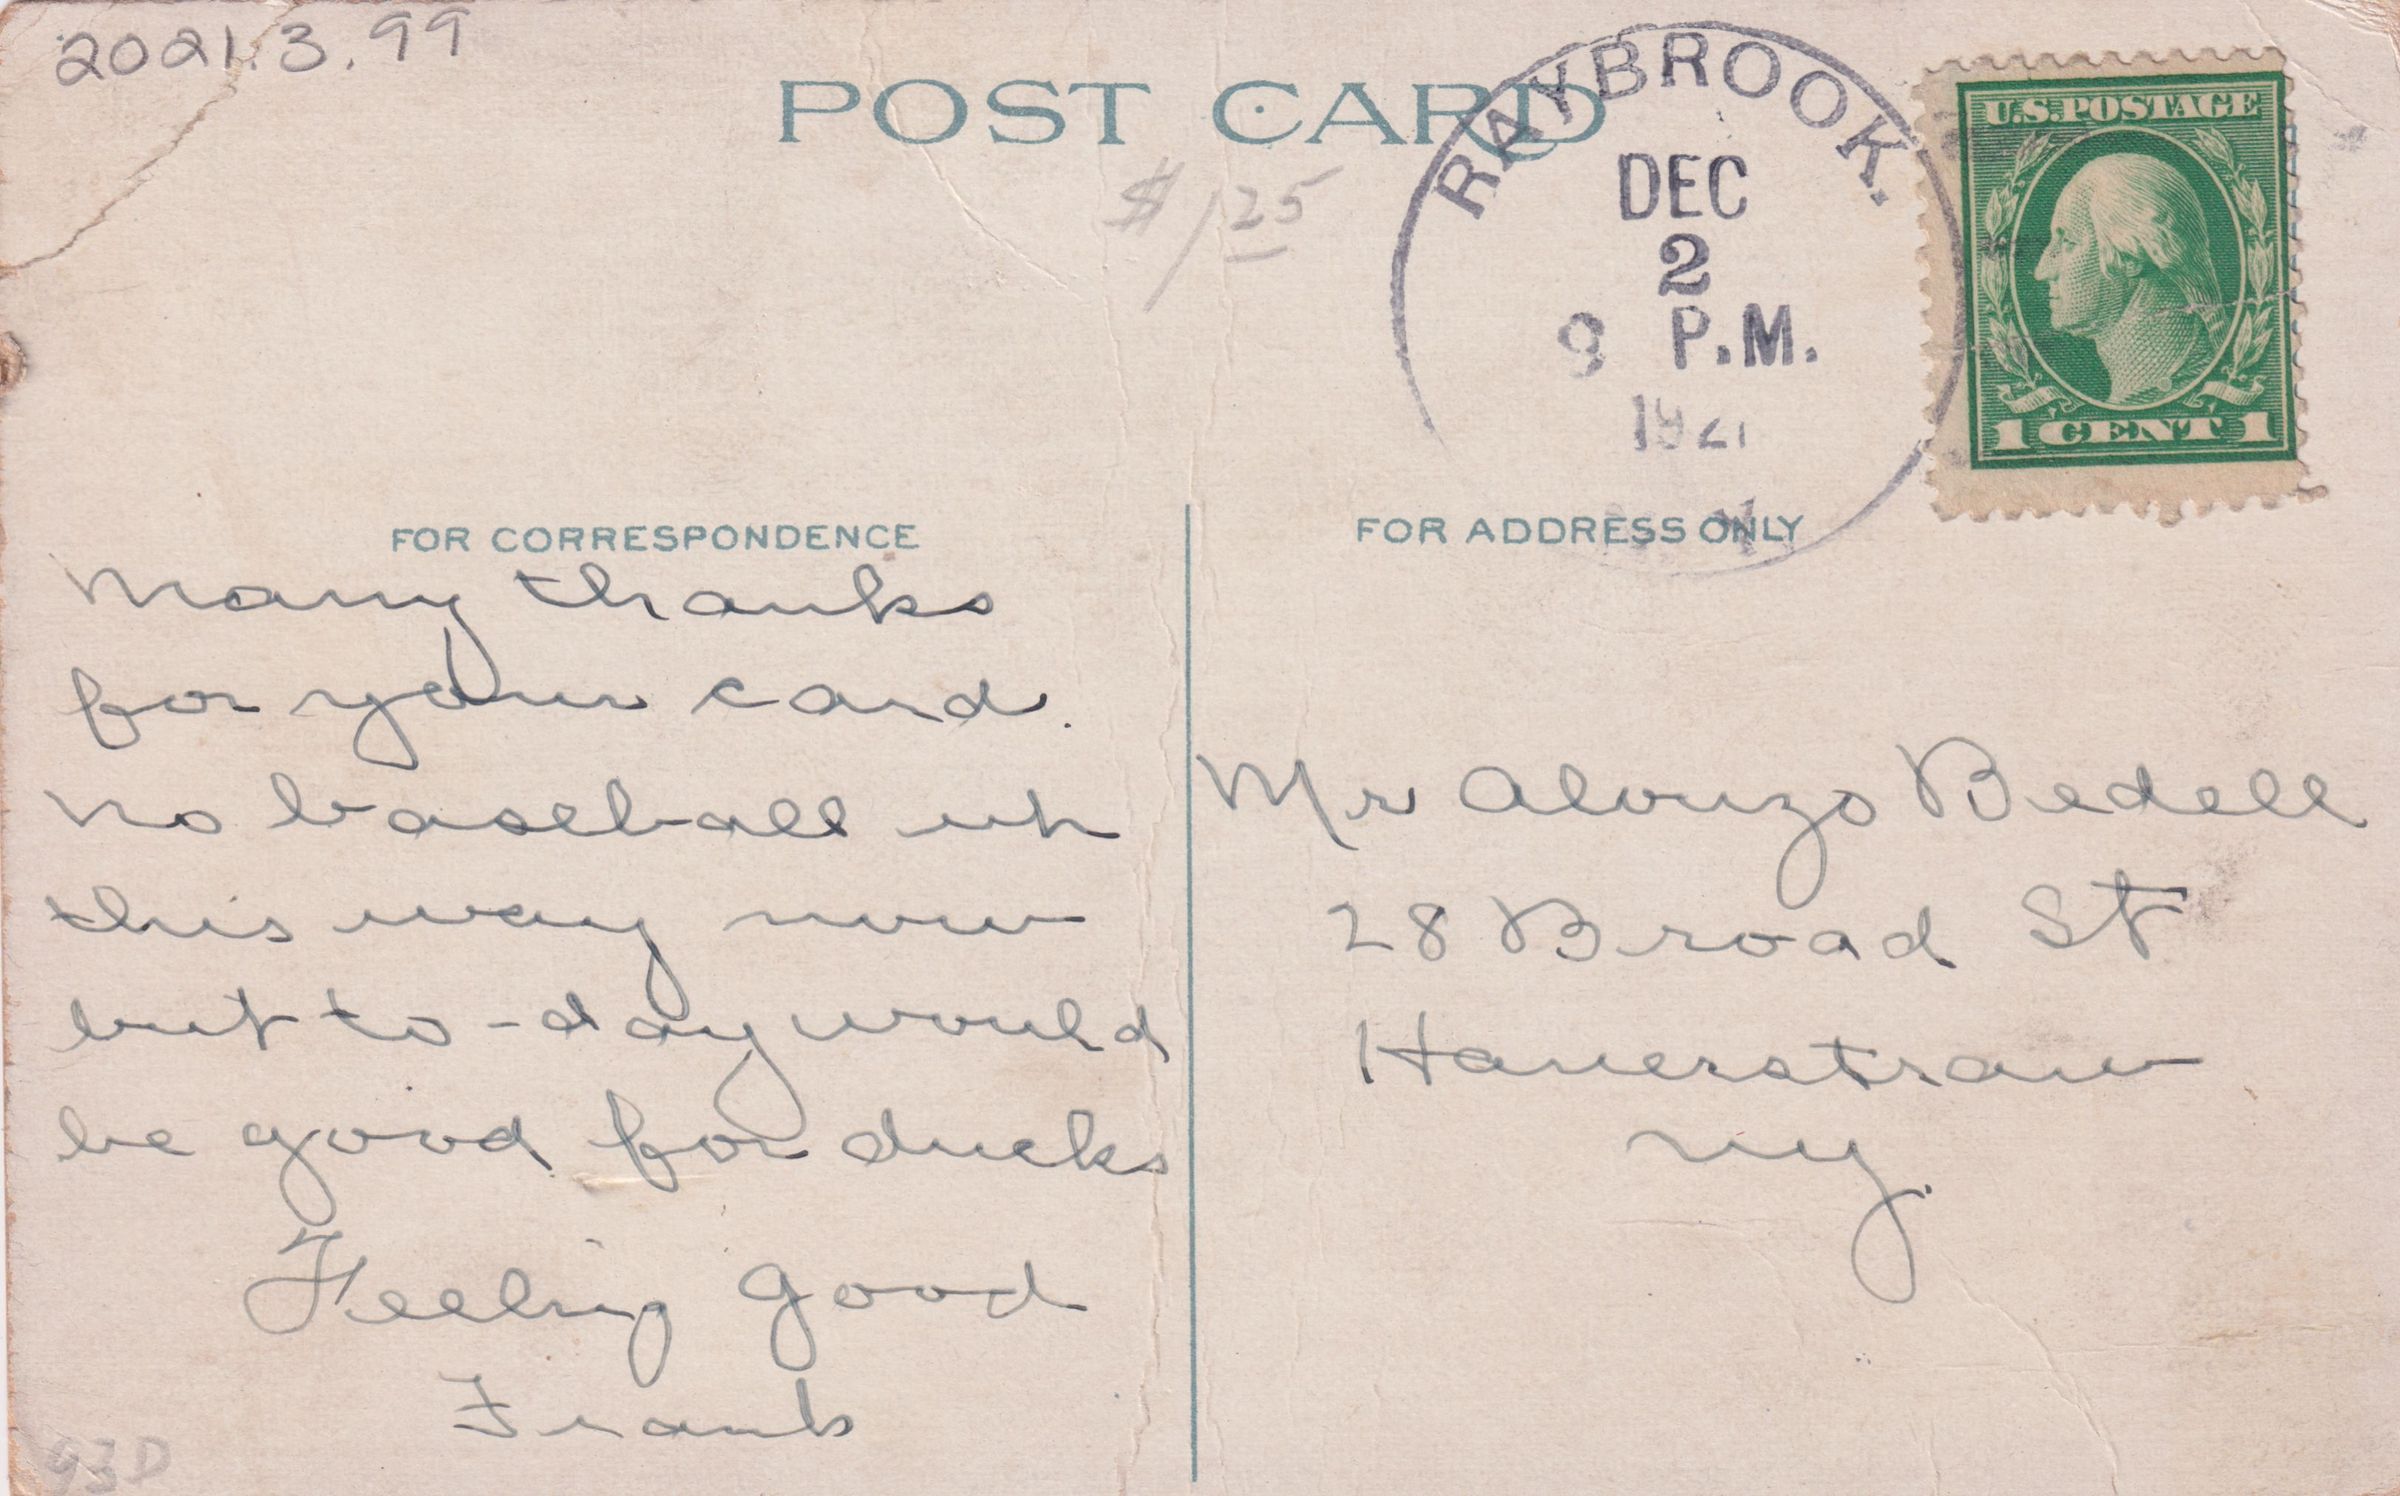 2021.3.99
POST CARD
$1.25
RAYBROOK.
DEC
2
9 P.M.
1921
U.S. POSTAGE
1 CENT 1
FOR CORRESPONDENCE
FOR ADDRESS ONLY
Many thanks
for your card.
No baseball up
this way now
but to-day would
be good for ducks
Feeling good
Frank
Mr Alonzo Bedell
28 Broad St
Haverstraw
NY.
93D